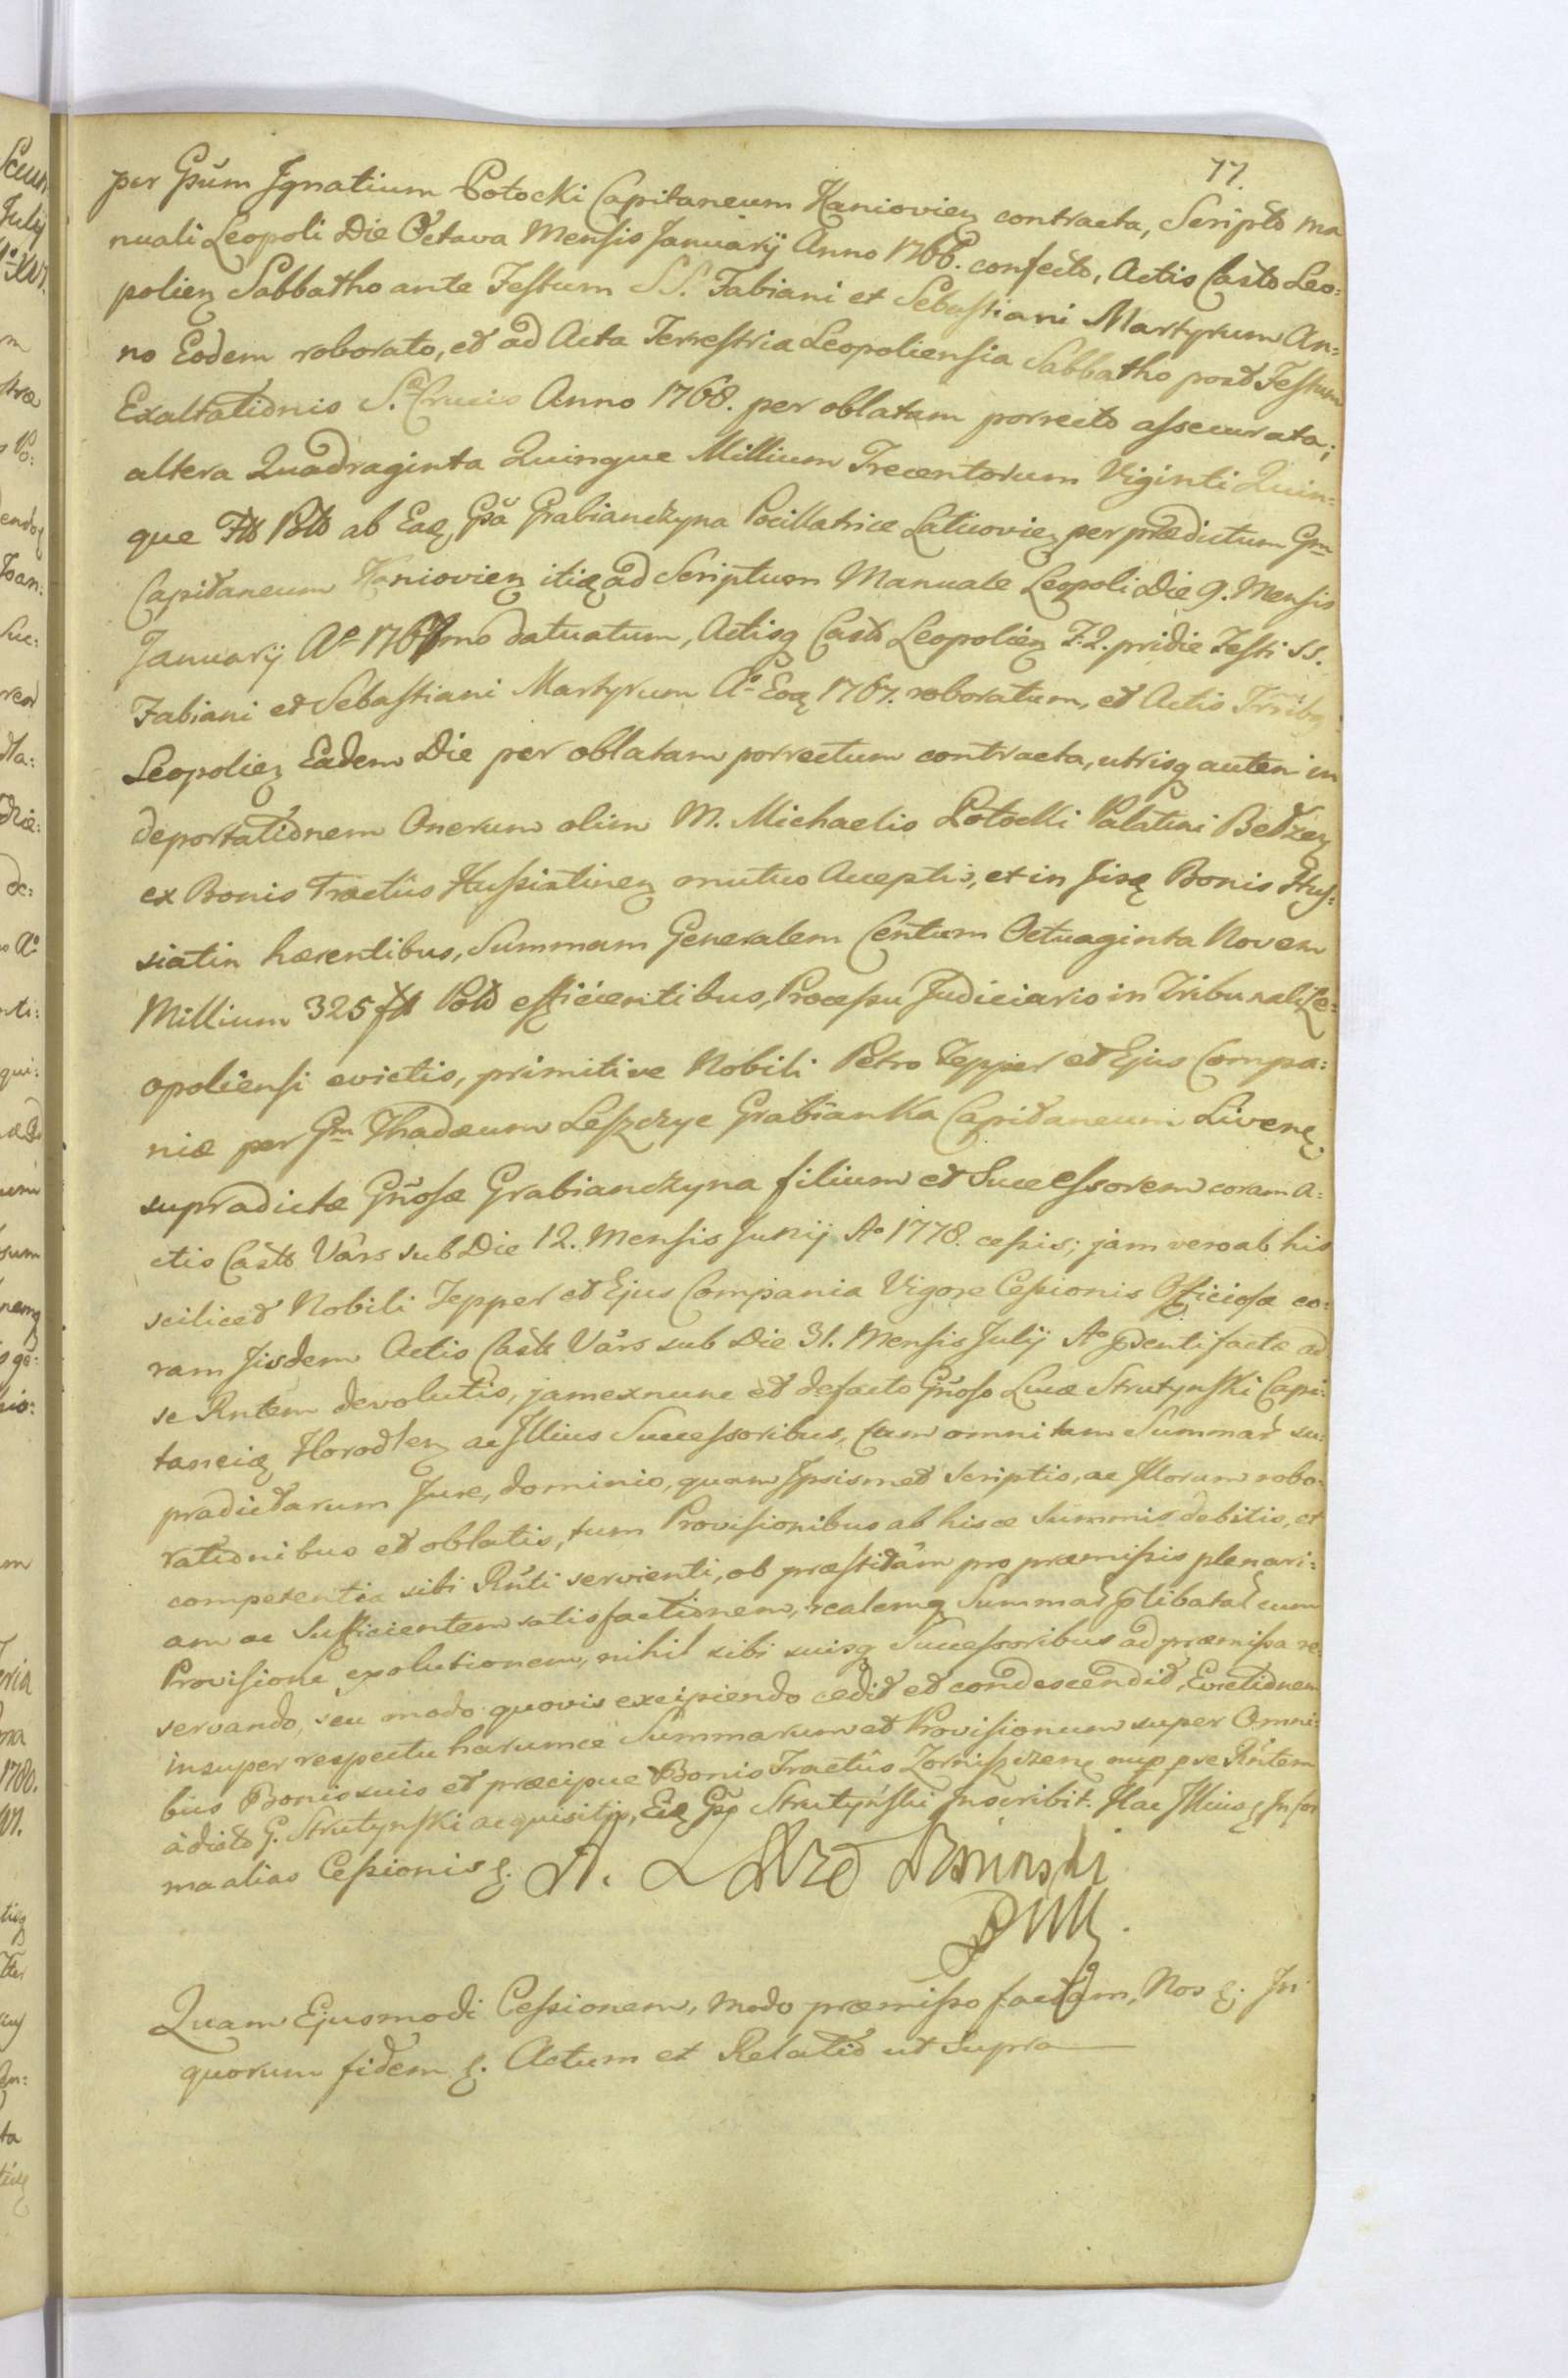 77.
per Gsum Ignatium Potocki Capitaneum Kaniovien contracta, Scripto ma
nuali Leopoli Die Octava Mensis Januarij Anno 1766. confecto, Actis Casto Leo=
polien Sabbatho ante Festum SS. Fabiani et Sebastiani Martyrum An=
no Eodem roborato, et ad Acta Terrestria Leopoliensia Sabbatho post Festum
Exaltationis S. Crucis Anno 1768. per oblatam porrecto assecurata;
altera Quadraginta Quinque Millium Trecentorum Viginti Quin=
que Flo Polo ab Eaq Gsa Grabianczyna Pocillatrice Laticovien per prædictum Gm
Capitaneum Kaniovien itiq ad Scriptum Manuale Leopoli Die 9. Mensis
Januarij Ao 1767mo datuatum, Actisq Casto Leopolien F. 2. pridie Festi SS.
Fabiani et Sebastiani Martyrum Ao Eoq 1767. roboratum, et Actis Trribq
Leopolien Eadem Die per oblatam porrectum contracta, utrisq autem in
deportationem Onerum olim M. Michaelis Potocki Palatini Bełzen
ex Bonis Tractus Hussiatinen mutuo Acceptis, et in Iisq Bonis Hus=
siatin hærentibus, Summam Generalem Centum Octuaginta Novem
Millium 325 fl Polo efficientibus, Processu Judiciario in Tribunali Le=
opoliensi evictis, primitive Nobili Petro Tepper et Ejus Compa=
niæ per Gm Thadæum Leszczyc Grabianka Capitaneum Livene.
supradictæ Gnosæ Grabianczyna filium et Successorem coram A=
ctis Casto Vars sub Die 12. Mensis Junij Ao 1778. cessis; jam vero ab his
scilicet Nobili Tepper et Ejus Compania Vigore Cessionis Officiosæ co=
ram Iisdem Actis Casto Vars sub Die 31. Mensis Julij Ao psenti factæ ad
se Rntem devolutis, jam ex nunc et defacto Gnoso Lucæ Strutynski Capi=
taneiq Horodlen ac Illius Successoribus, cum omni tam Summar su=
pradictarum Jure, dominio, quam Ipsismet Scriptis, ac Illorum robo=
rationibus et oblatis, tum Provisionibus ab hisce Summis debitis, et
competentia sibi Rnti servienti, ob præstitam pro præmissis plenari=
am ac Sufficientem satisfactionem, realemq Summar plibatar cum
Provisione exolutionem, nihil sibi suisq Successoribus ad præmissa re=
servando, seu modo quovis excipiendo cedit et condescendit, Evictionem
insuper respectu harumce Summarum et Provisionum super Omni=
bus Bonis suis et præcipue Bonis Tractus Zorniszczene nup p se Rntem
a dicto G. Strutynski acquisitis, Eiq Gso Strutyński Inscribit. Hac Illius q In for
ma alias Cessionis q. A.
Quam Ejusmodi Cessionem, modo præmisso factam, Nos q. In
quorum fidem q. Actum et Relatio ut Supra